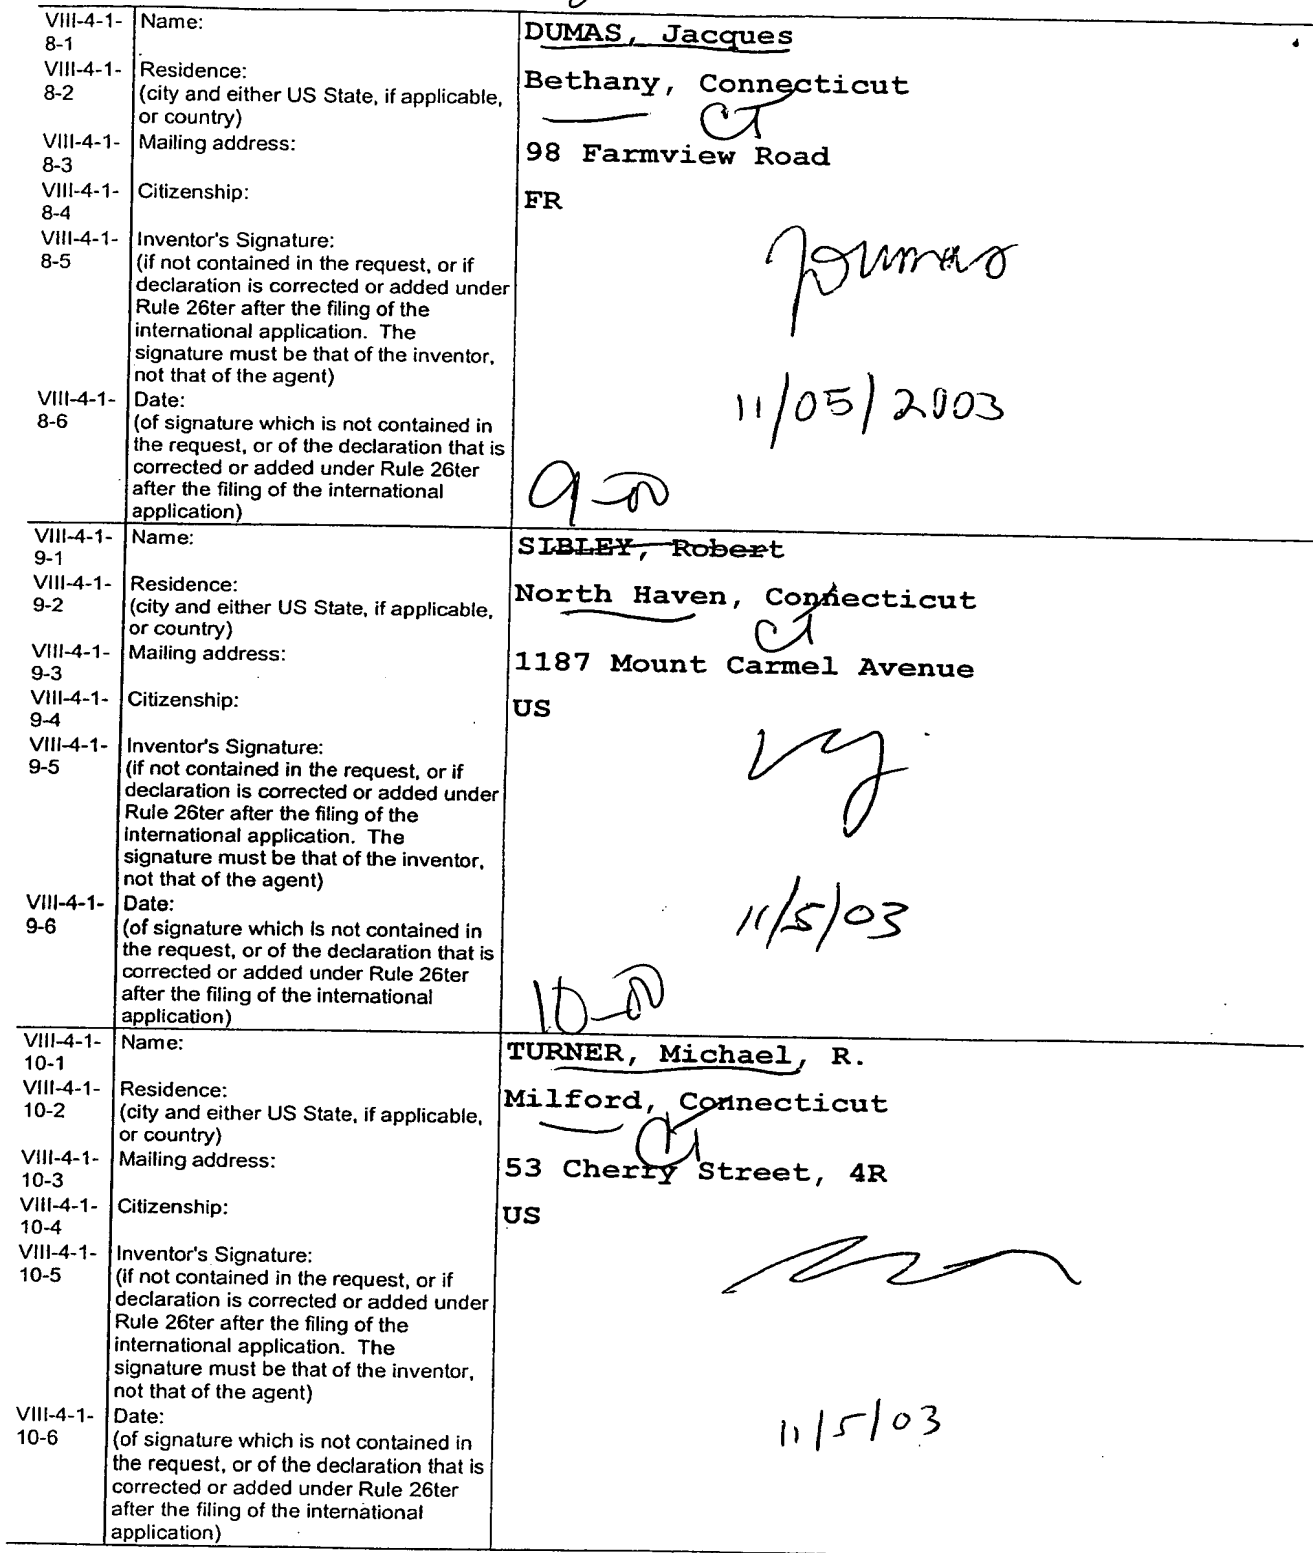 VIII-4-1-8-1 Name: DUMAS, Jacques
VIII-4-1-8-2 Residence: (city and either US State, if applicable, or country) Bethany, Connecticut
CT
VIII-4-1-8-3 Mailing address: 98 Farmview Road
VIII-4-1-8-4 Citizenship: FR
VIII-4-1-8-5 Inventor's Signature:
(if not contained in the request, or if
declaration is corrected or added under
Rule 26ter after the filing of the
international application. The
signature must be that of the inventor,
not that of the agent)
JDumas
VIII-4-1-8-6 Date:
(of signature which is not contained in
the request, or of the declaration that is
corrected or added under Rule 26ter
after the filing of the international
application)
11/05/2003
9-00
VIII-4-1-9-1 Name: SIBLEY, Robert
VIII-4-1-9-2 Residence: (city and either US State, if applicable, or country) North Haven, Connecticut
CT
VIII-4-1-9-3 Mailing address: 1187 Mount Carmel Avenue
VIII-4-1-9-4 Citizenship: US
VIII-4-1-9-5 Inventor's Signature:
(if not contained in the request, or if
declaration is corrected or added under
Rule 26ter after the filing of the
international application. The
signature must be that of the inventor,
not that of the agent)
VIII-4-1-9-6 Date:
(of signature which is not contained in
the request, or of the declaration that is
corrected or added under Rule 26ter
after the filing of the international
application)
11/5/03
10-00
VIII-4-1-10-1 Name: TURNER, Michael, R.
VIII-4-1-10-2 Residence: (city and either US State, if applicable, or country) Milford, Connecticut
CT
VIII-4-1-10-3 Mailing address: 53 Cherry Street, 4R
VIII-4-1-10-4 Citizenship: US
VIII-4-1-10-5 Inventor's Signature:
(if not contained in the request, or if
declaration is corrected or added under
Rule 26ter after the filing of the
international application. The
signature must be that of the inventor,
not that of the agent)
VIII-4-1-10-6 Date:
(of signature which is not contained in
the request, or of the declaration that is
corrected or added under Rule 26ter
after the filing of the international
application)
11/5/03